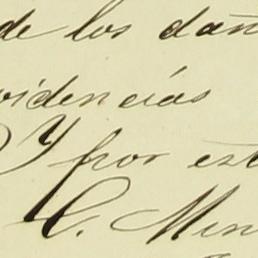 de los dañ
videncias
Y por est
C. Men